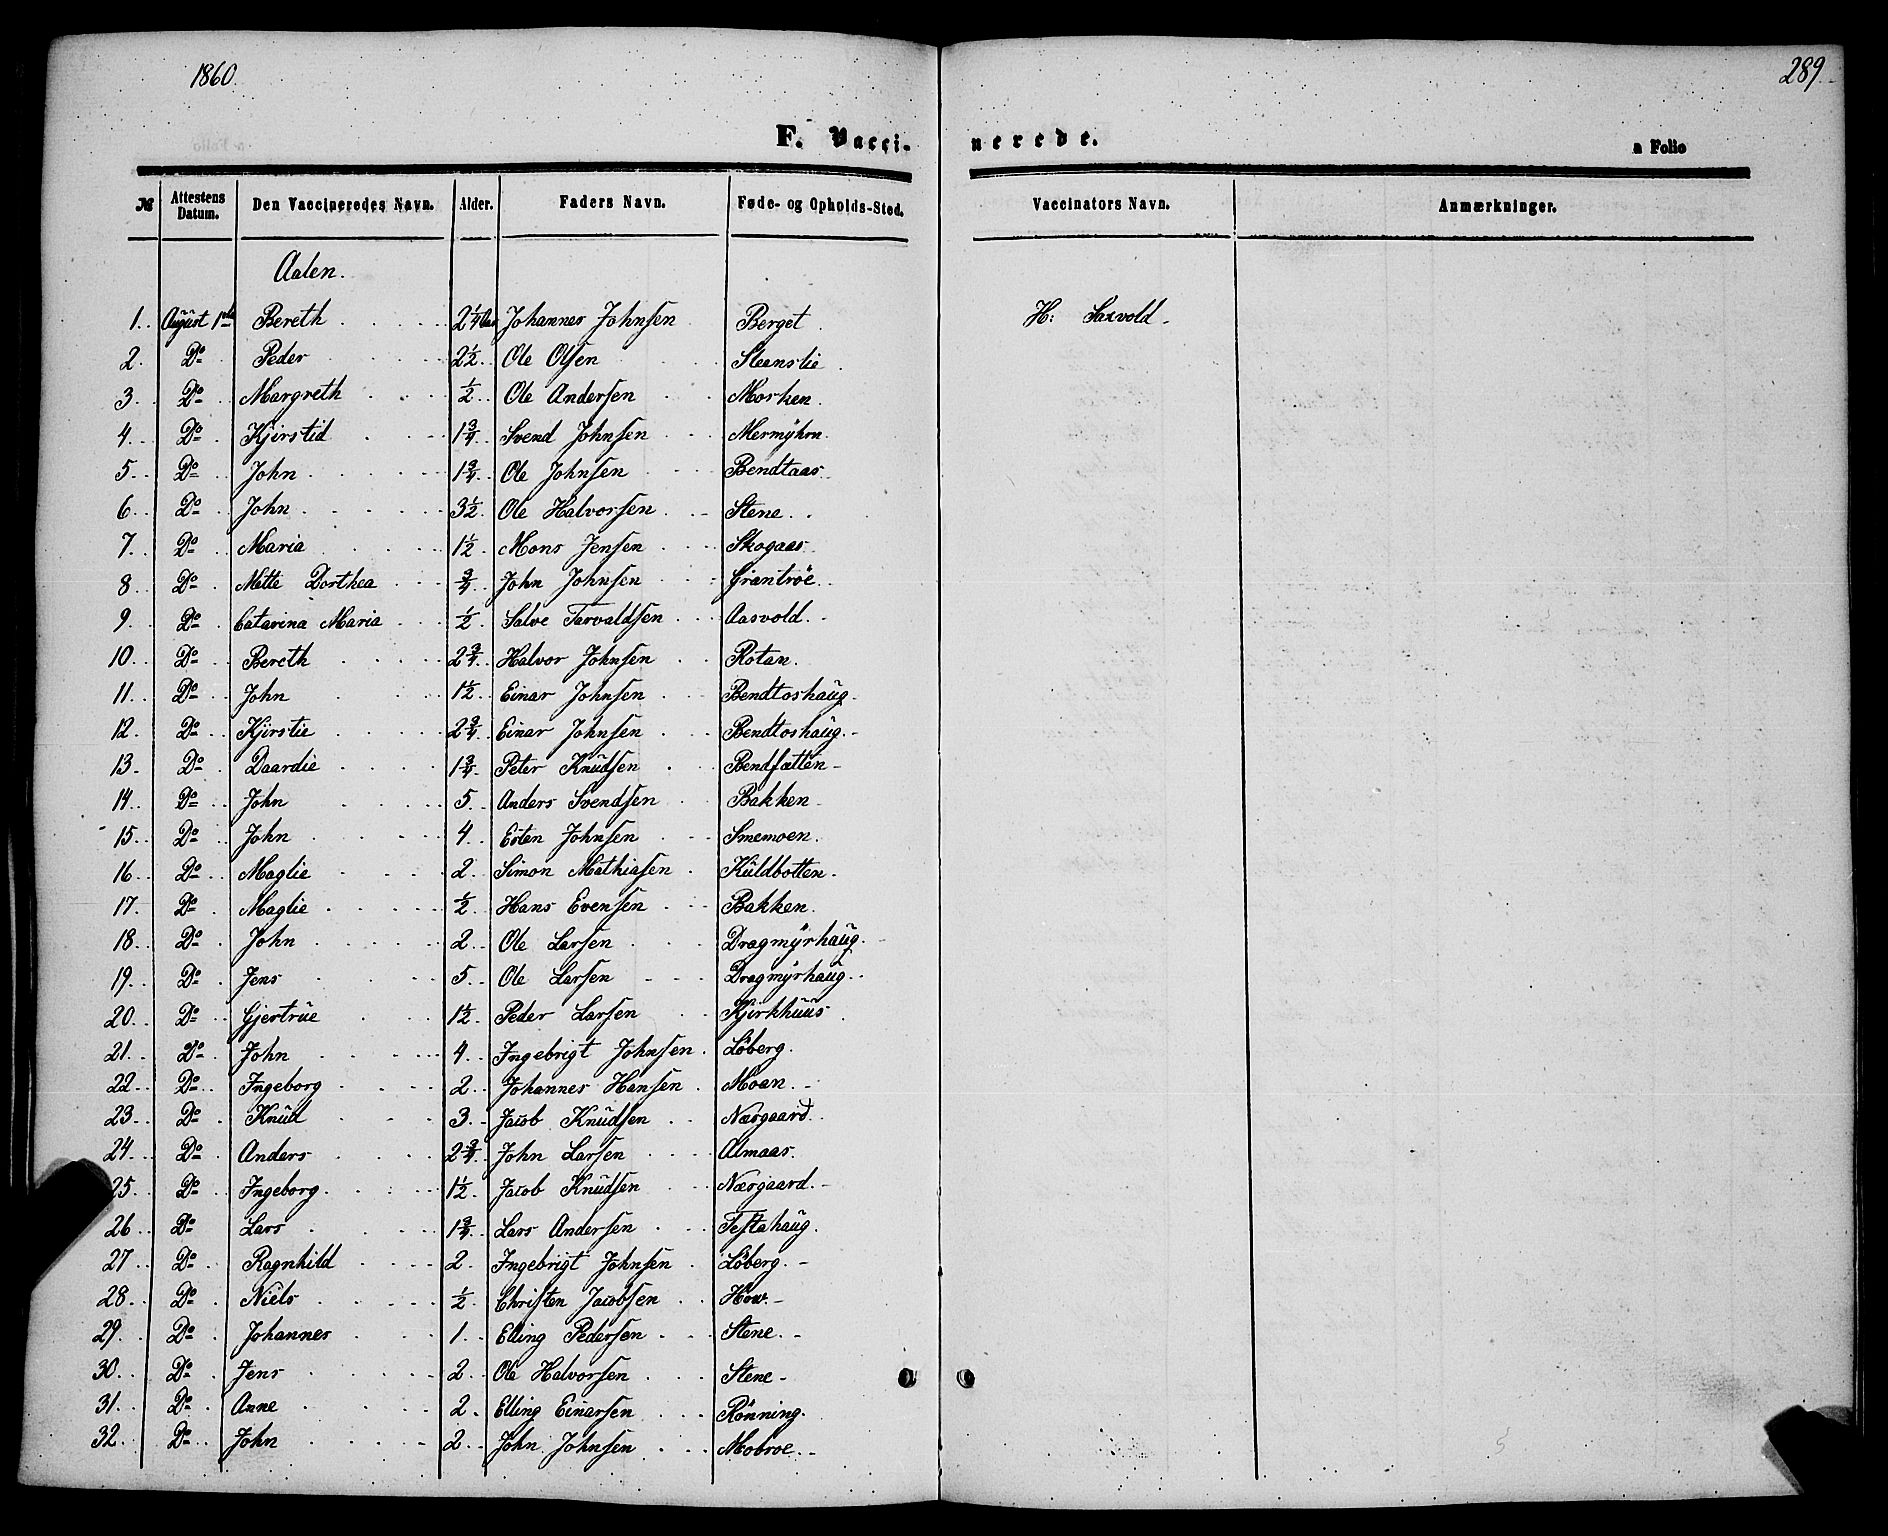 1860.
289.
F. Vacci- nerede.
a Folio
№ Attestens Datum. Den Vaccineredes Navn. Alder. Faders Navn. Føde- og Opholds-Sted. Vaccinators Navn. Anmærkninger.
Aalen.
1. August 1ste Bereth 2¼ Aar Johannes Johnsen Berget. H: Saxvold.
2. Do Peder 2½ Ole Olsen Steenslie
3. Do Margreth ½ Ole Andersen Morken.
4. Do Kjirstid 1¾ Svend Johnsen
5. Do John 1¾ Ole Johnsen Bendtaas
6. Do John 3½ Ole Halvorsen Stene.
7. Do Maria 1½ Mons Jensen Skogaas
8. Do Mette Dorthea ¾ John Johnsen Grantrøe
9. Do Catarina Maria ½ Salve Tarvaldsen Aasvold.
10. Do Bereth 2¾ Halvor Johnsen Rotan.
11. Do John 1½ Einar Johnsen Bendtoshaug
12. Do Kjirstie 2¾ Einar Johnsen Bendtoshaug.
13. Do Daardie 1¾ Peter Knudsen Bendfætten
14. Do John 5 Anders Svendsen Bakken
15. Do John 4 Esten Johnsen Smemoen.
16. Do Maglie 2 Simon Mathiasen Kuldbotten.
17. Do Maglie ½ Hans Evensen Bakken.
18. Do John 2 Ole Larsen Dragmyrhaug.
19. Do Jens 5 Ole Larsen Dragmyrhaug.
20. Do Gjertrue 1½ Peder Larsen Kjirkhuus
21. Do John 4 Ingebrigt Johnsen Løberg.
22. Do Ingeborg 2 Johannes Hansen Moan.
23. Do Knud 3 Jacob Knudsen Nærgaard.
24. Do Anders 2¾ John Larsen Almaas.
25. Do Ingeborg 1½ Jacob Knudsen Nærgaard.
26. Do Lars 1¾ Lars Andersen Testahaug.
27. Do Ragnhild 2 Ingebrigt Johnsen Løberg.
28. Do Niels ½ Christen Jacobsen Hov.
29. Do Johannes 1 Elling Pedersen Stene.
30. Do Jens 2 Ole Halvorsen Stene
31. Do Anne 2 Elling Einarsen Rønning.
32. Do John 2 John Johnsen Mobroe.